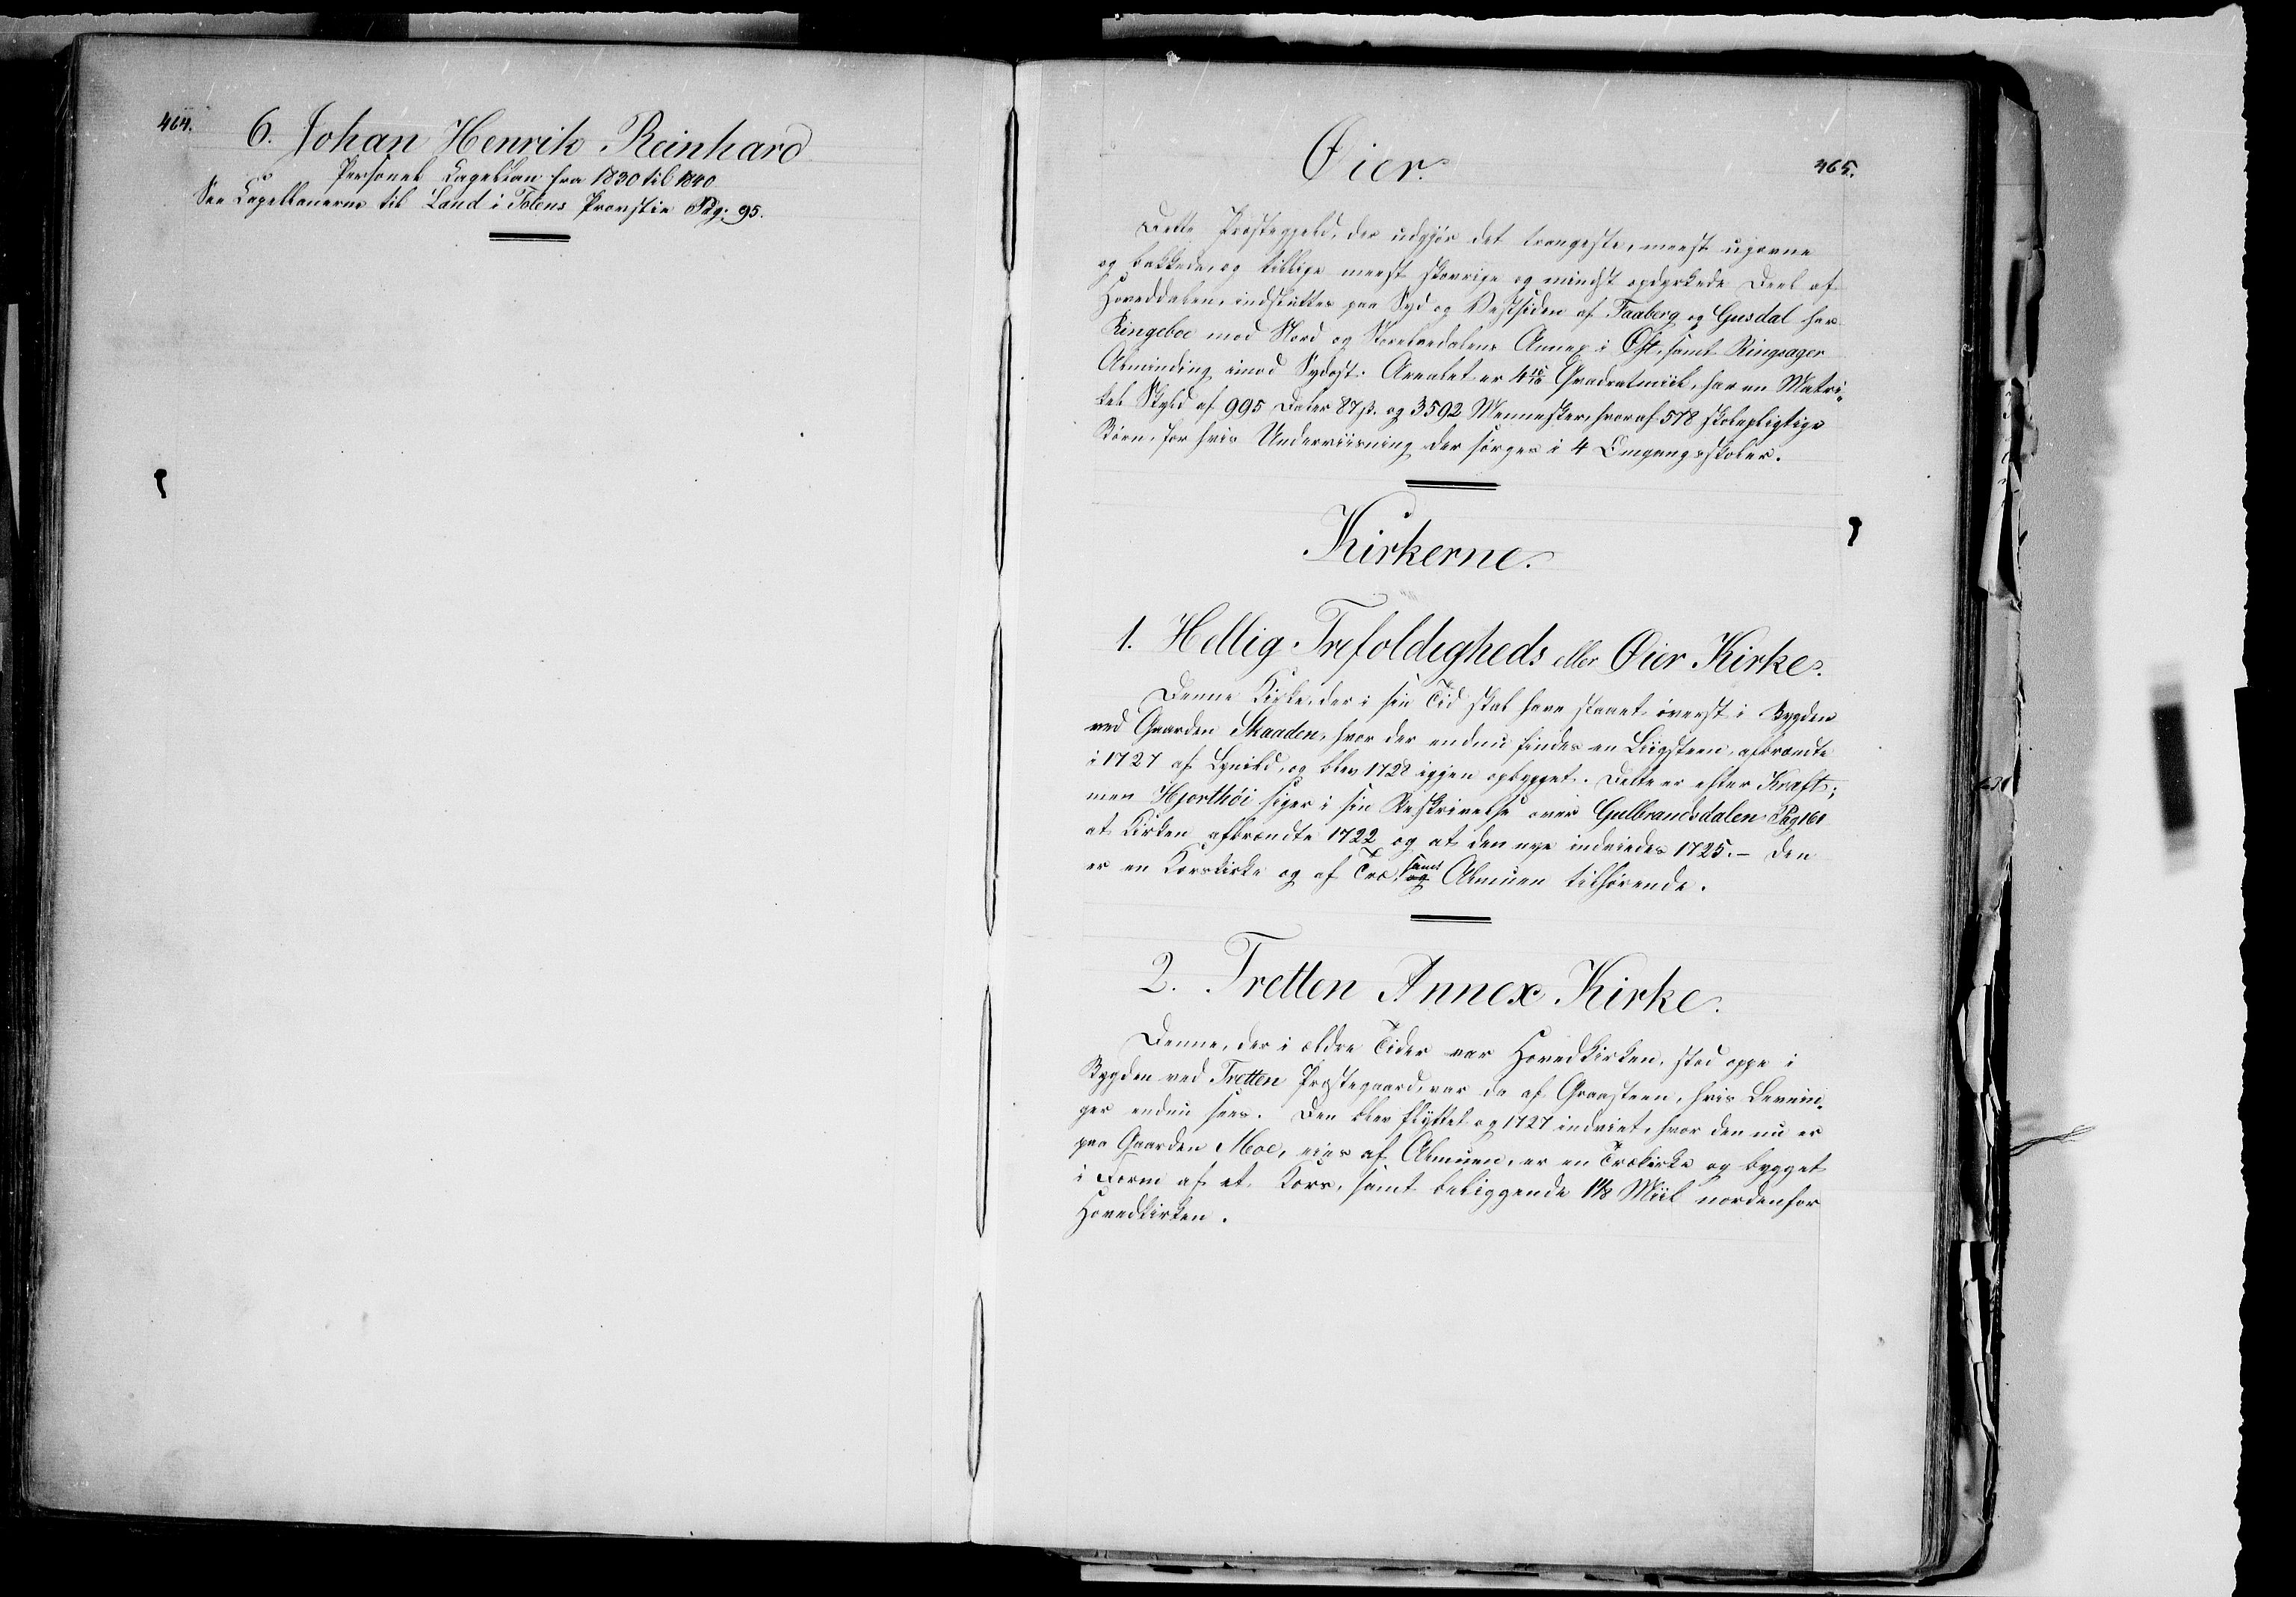 464.
6. Johan Henrik Reinhard
Personel Capellan fra 1830 til 1840
See Capellanerne til Land i Totens Provstie Pag: 95.
Øier.
465.
Dette Præstegjeld, der udgjør det trangeste, meest ujevne
og bakkede, og tillige meest skovrige og mindst opdyrkede Deel af
Hoveddalen, indsluttes paa Syd og Vestsiden af Faaberg og Gusdal har
Ringeboe mod Nord og Storelvedalens Annex i Øst, samt Ringsager
Alminding imod Sydost. Arealet er 4 Qvadratmiil, har en Matri-
kel Skyld af 995 Daler 87 ß. og 3592 Mennesker, hvoraf 578 skolepligtige
Børn, for hvis Underviisning der sørges i 4 Omgangsskoler.
Kirkerne.
1. Hellig Trefoldigheds eller Øier Kirke.
Denne Kirke, der i sin Tid skal have staaet øverst i Bygden
ved Gaarden Skaaden, hvor der endnu findes en Liigsteen, afbrændte
i 1727 af Lynild, og blev 1728 igjen opbygget. Dette er efter Kraft;
men Hjorthøi siger i sin Beskrivelse over Gulbrandsdalen Pag 161
at Kirken afbrændte 1722 og at den nye indviedes 1725. – Den
er en Korskirke og af Træ, samt og Almuen tilhørende.
2. Tretten Annex Kirke.
Denne, der i ældre Tider var Hovedkirken, stod oppe i
Bygden ved Tretten Præstegaard, var da af Graasteen, hvis Levnin-
ger endnu sees. Den blev flyttet og 1727 indviet, hvor den nu er
paa Gaarden Moe, eies af Almuen, er en Trækirke og bygget
i Form af et Kors, samt beliggende 1 1/8 Miil nordenfor
Hovedkirken.